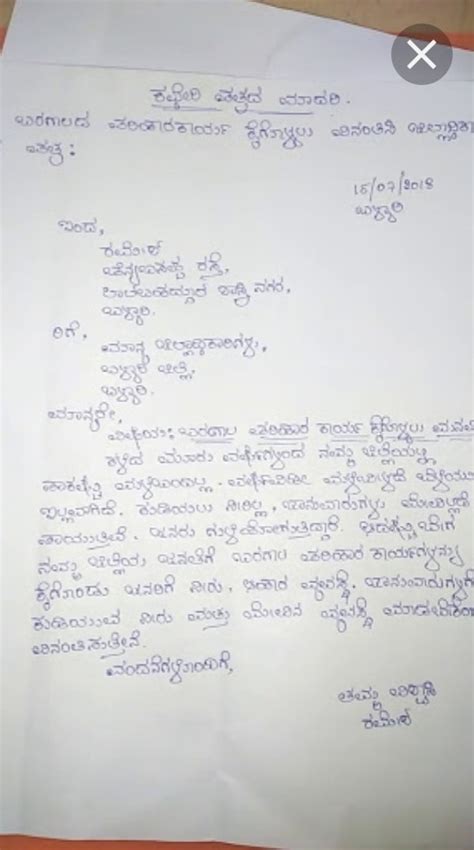 ಕಛೇರಿ ಪತ್ರದ ಮಾದರಿ.
ಬರಗಾಲದ ಪರಿಹಾರಕಾರ್ಯ ಕೈಗೊಳ್ಳಲು ವಿನಂತಿಸಿ
ಪತ್ರ :
15/07/2018
ಬಳ್ಳಾರಿ
ಇಂದ,
ರಮೇಶ
ರಸ್ತೆ,
ಲಾಲಬಹದ್ದೂರ ಶಾಸ್ತ್ರಿ ನಗರ,
ಬಳ್ಳಾರಿ.
ರಿಗೆ,
ಮಾನ್ಯ ಜಿಲ್ಲಾಧಿಕಾರಿಗಳು,
ಬಳ್ಳಾರಿ ಜಿಲ್ಲೆ,
ಬಳ್ಳಾರಿ.
ಮಾನ್ಯರೇ,
ವಿಷಯ: ಬರಗಾಲ ಪರಿಹಾರ ಕಾರ್ಯ ಕೈಗೊಳ್ಳಲು
ಕಳೆದ ಮೂರು ವರ್ಷಗಳಿಂದ ನಮ್ಮ ಜಿಲ್ಲೆಯಲ್ಲಿ
ಇಲ್ಲವಾಗಿದೆ. ಕುಡಿಯಲು ನೀರಿಲ್ಲ, ಜಾನುವಾರುಗಳು ಮೇವಿಲ್ಲದೆ
ಸಾಯುತ್ತಿವೆ. ಜನರು ಗುಳೆಹೋಗುತ್ತಿದ್ದಾರೆ. ಆದಷ್ಟು ಬೇಗ
ನಮ್ಮ ಜಿಲ್ಲೆಯ ಜನತೆಗೆ ಬರಗಾಲ ಪರಿಹಾರ ಕಾರ್ಯಗಳನ್ನು
ಕೈಗೊಂಡು ಜನರಿಗೆ ನೀರು, ಆಹಾರ ವ್ಯವಸ್ಥೆ, ಜಾನುವಾರುಗಳಿಗೆ
ಕುಡಿಯುವ ನೀರು ಮತ್ತು ಮೇವಿನ ವ್ಯವಸ್ಥೆ
ವಿನಂತಿಸುತ್ತೇವೆ.
ವಂದನೆಗಳೊಂದಿಗೆ,
ತಮ್ಮ ವಿಶ್ವಾಸಿ
ರಮೇಶ